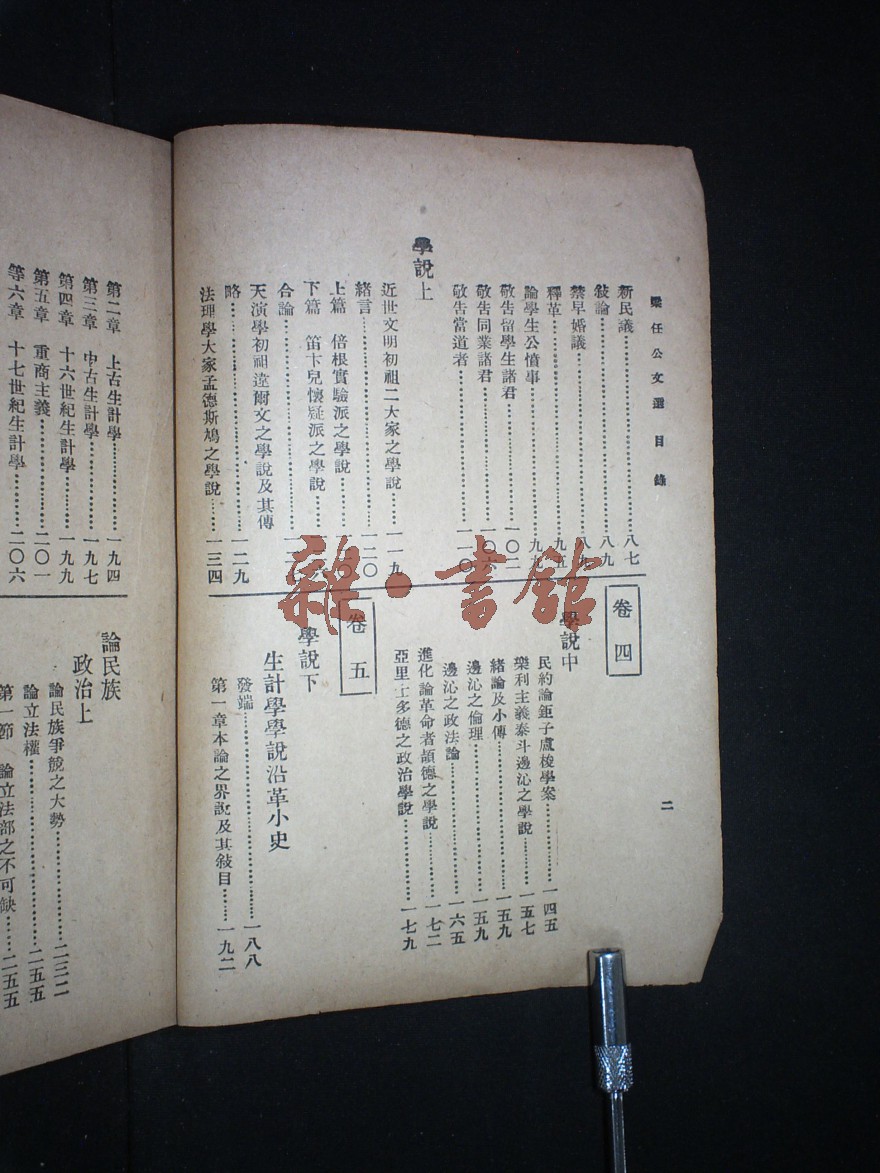 梁任公文選目錄
二
新民議……八七
敍論……八九
禁早婚議……八九
釋革……九五
論學生公憤事……九九
敬吿留學生諸君……一〇二
敬吿同業諸君……一〇六
敬吿當道者……一一〇
學說上
近世文明初祖二大家之學說……一一九
緒言……一二〇
上篇 倍根實驗派之學說
下篇 笛卞兒懷疑派之學說
合論
天演學初祖達爾文之學說及其傳
略……一二九
法理學大家孟德斯鳩之學說……一三四
卷四
學說中
民約論鉅子盧梭學案……一四五
樂利主義泰斗邊沁之學說……一五七
緒論及小傳……一五九
邊沁之倫理……一五九
邊沁之政法論……一六五
進化論革命者頡德之學說……一七二
亞里士多德之政治學說……一七九
卷五
學說下
生計學學說沿革小史
發端……一八八
第一章本論之界說及其敍目……一九二
第二章 上古生計學……一九四
第三章 中古生計學……一九七
第四章 十六世紀生計學……一九九
第五章 重商主義……二〇一
等六章 十七世紀生計學……二〇六
論民族
政治上
論民族爭競之大勢……二三二
論立法權……二五五
第一節 論立法部之不可缺……二五五
雜·書館